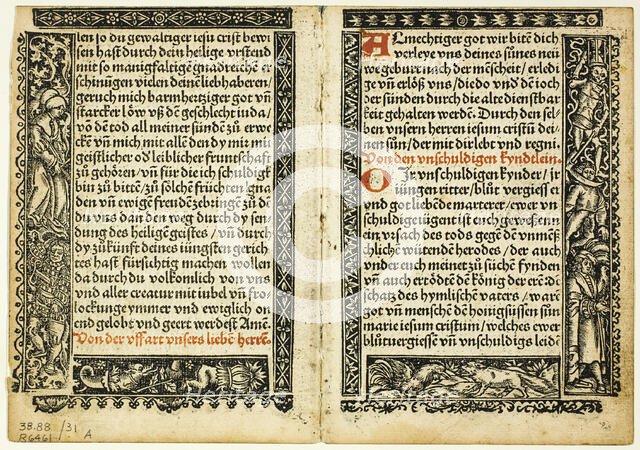 len so du gewaltiger iesu crist bewi
sen hast durch dein heilige vrstend
mit so manigfaltigē gnadreichē er
schinūgen vielen deinē liebhaberen/
geruch mich barmhertziger got vn̄
starcker löw vß dē geschlecht iuda/
vō dē tod all meiner sünde zů erwe
ckē vn̄ mich mit allē den dy mir mit
geistlicher od̄ leiblicher fruntschaft
zů gehōren/ vn̄ für die ich schuldig
bin zů bittē/ zů sölchē früchtē/ gna
den vn̄ ewigē freudē
du vns dar den weg durch dy sen
dung des heiligē geistes/ vn̄ durch
dy zůkünft deines iüngstē gerich
tes hast fürsichtig machen wollen
da durch du volkomlich von vns
vnd aller creatur mit iubel vn̄ fro
lockunge ymmer vnd ewiglich on
end gelobt vnd geert werdest Amē.
Von der vffart vnsers liebē herrē.
ALmechtiger got wir bitē dich
verleye vns deines sūnes neü
we geburt nach der mēscheit/ erledi
ge vn̄ erlöß vns/ die do vnd dē ioch
der sünden durch die alte dienstbar
keit gehalten werdē. Durch den sel
ben vnsern herren iesum cristū dei
nen sün/ der mit dir lebt vnd regni.
Von den vnschuldigen kyndlein.
O Ir vnschuldigen kynder/ ir
iüngen ritter/ blůt vergiess er
vnd got liebēde marterer/ ewer vn
schuldige iügent ist euch gewesen
ein vrsach des tods gegē dē vnmēß
chlichē wütenden herodes/ der auch
vnder euch meinet zů sůchē fynden
vn̄ auch ertödtē dē König der erē dē
schatz des hymlischē vaters/ warē
got vn̄ menschē dē honigsüssen sün
marie iesum cristum/ welches ewer
blůtvergiessē vn̄ vnschuldigs leidē
38.88 /31
R6461 A